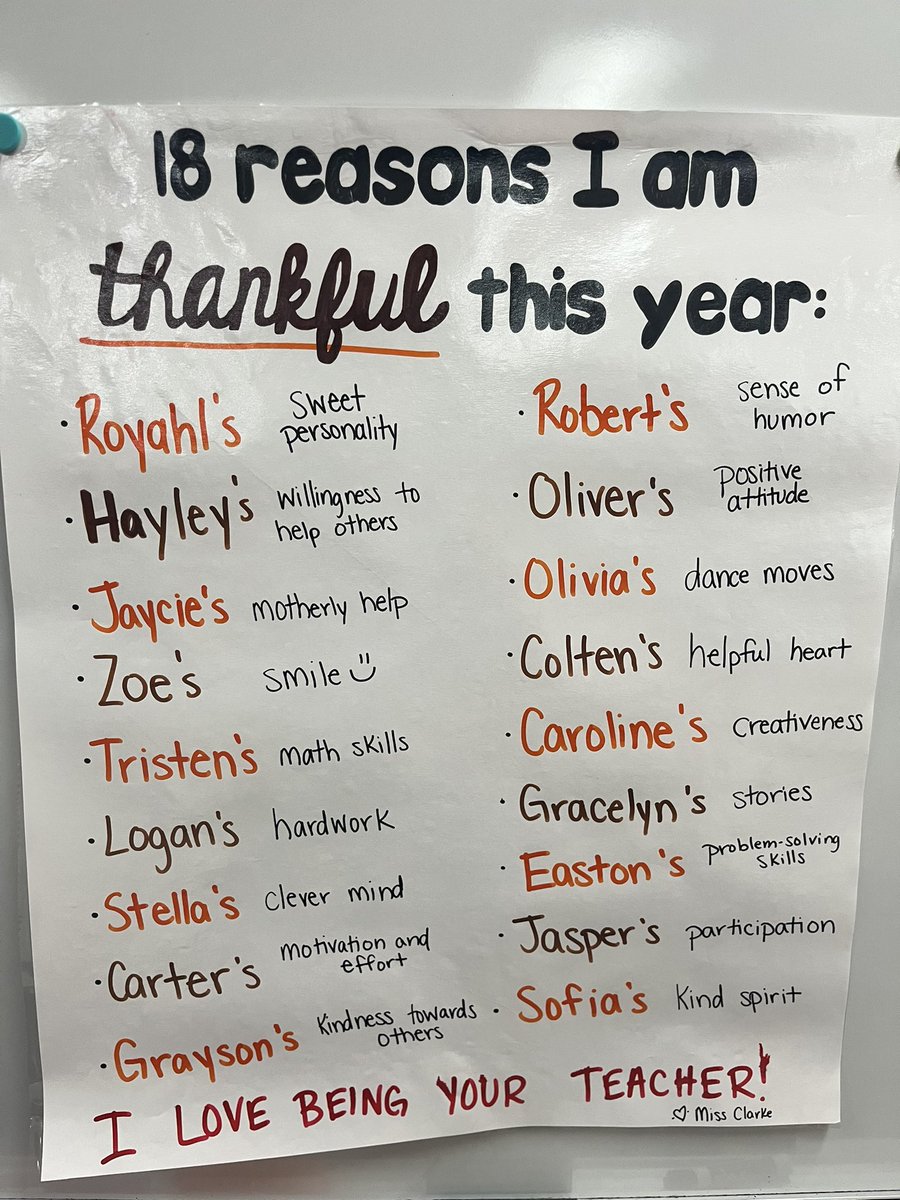 18 reasons I am
thankful this year:
· Royahl's sweet
personality
· Hayley's willingness to
help others
· Jaycie's motherly help
· Zoe's smile
· Tristen's math skills
· Logan's hardwork
· Stella's clever mind
· Carter's motivation and
effort
· Grayson's kindness towards
others
· Robert's sense of
humor
· Oliver's positive
attitude
· Olivia's dance moves
· Colten's helpful heart
· Caroline's creativeness
· Gracelyn's stories
· Easton's problem-solving
skills
· Jasper's participation
· Sofia's kind spirit
I LOVE BEING YOUR TEACHER!
♡ Miss Clarke